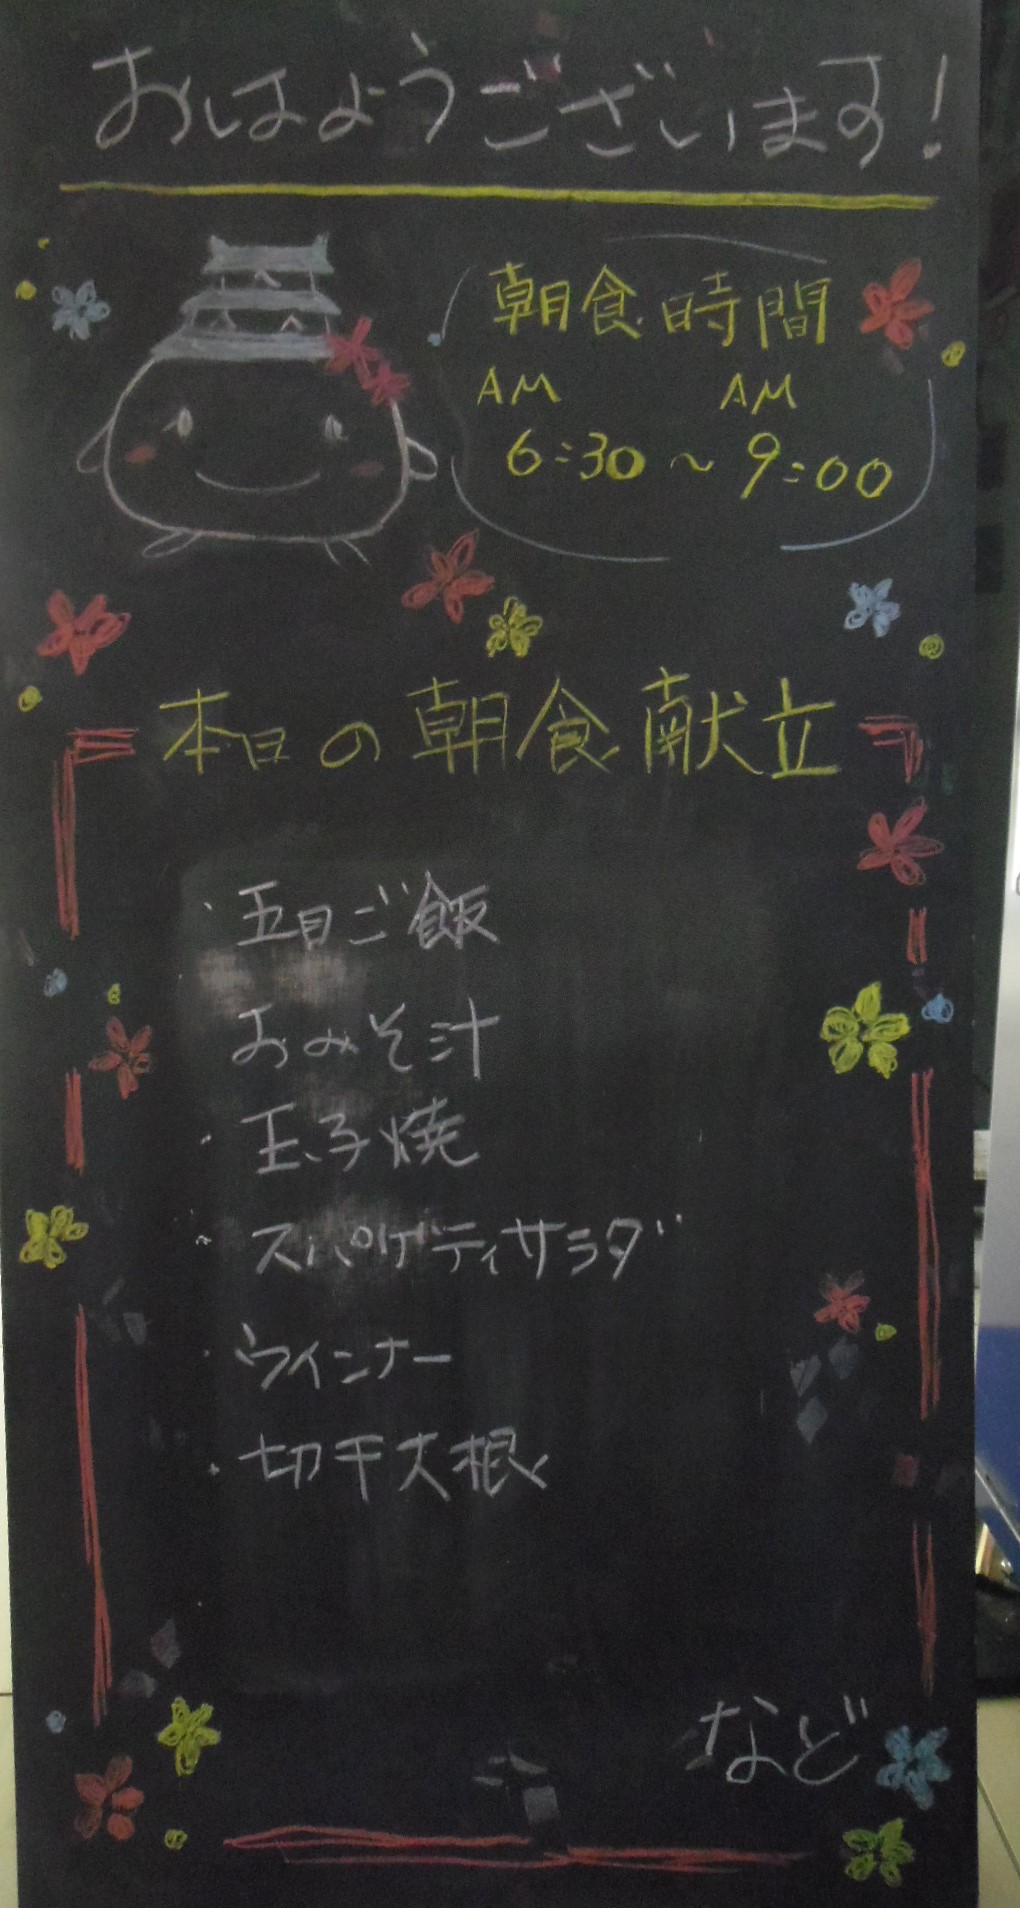 おはようございます!
朝食時間
AM AM
6:30~9:00
本日の朝食献立
・五目ご飯
おみそ汁
・玉子焼
・スパゲティサラダ
・ウインナー
・切干大根
など